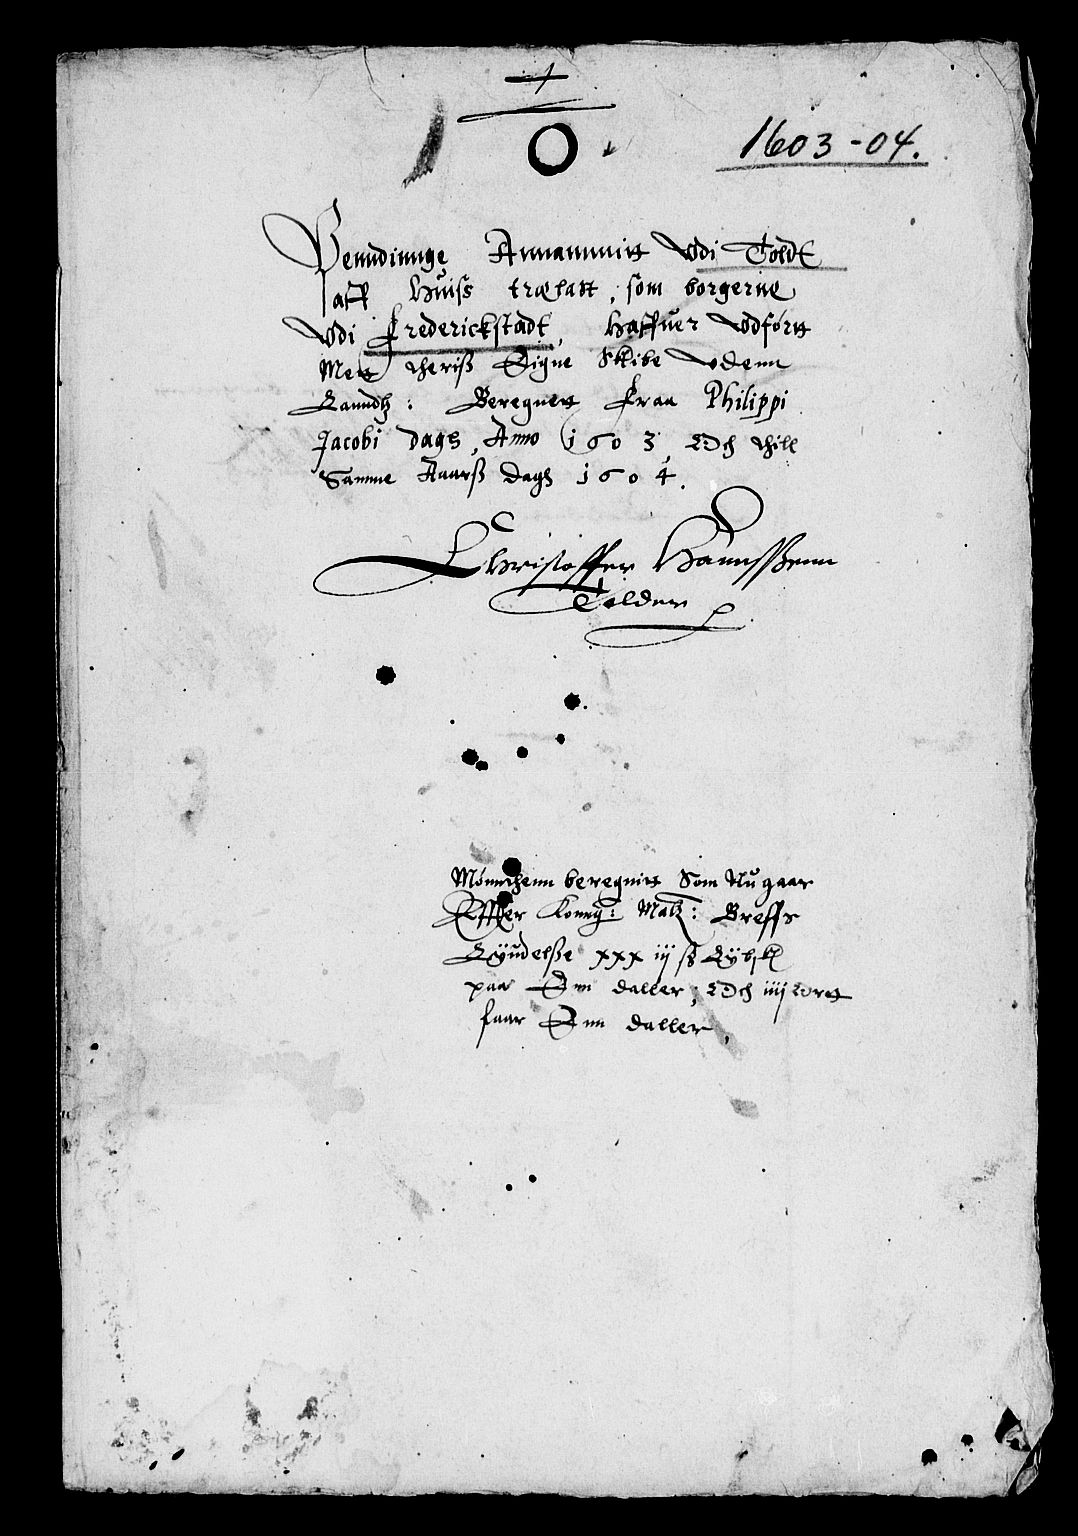 O
1603-04.
Penndinnge Annammitt Vdi Toldt
aff huiss trælatt, som borgerne
Vdi Frederickstadt, haffuer Vdførtt
Mett theriß Eigne Skibe vdenn
Lanndtz: Beregnett Fraa Philippi
Jacobi dags, Anno 1603, Och thill
Samme Aarß dags 1604.
Christoffer Hannsßenn
Tolder
Mønnthenn beregnitt Som Nu gaar
Effter Konng: Matz: Breffs
Lÿudelße xxxiij ß Lÿbsk
paa Enn daller, Och iiij Ortt
faar Enn daller,